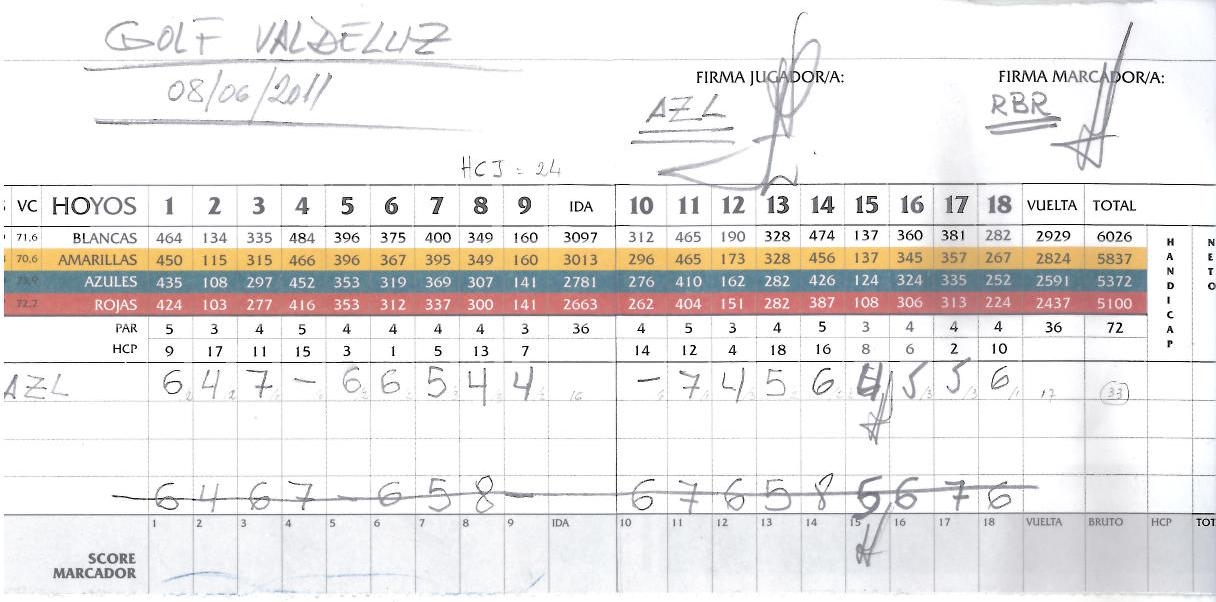 GOLF VALDELUZ
08/06/2011
FIRMA JUGADOR/A:
FIRMA MARCADOR/A:
AZL
RBR
HCJ = 24
VC HOYOS 1 2 3 4 5 6 7 8 9 IDA 10 11 12 13 14 15 16 17 18 VUELTA TOTAL
71,6 BLANCAS 464 134 335 484 396 375 400 349 160 3097 312 465 190 328 474 137 360 381 282 2929 6026
70,6 AMARILLAS 450 115 315 466 396 367 395 349 160 3013 296 465 173 328 456 137 345 357 267 2824 5837
73,9 AZULES 435 108 297 452 353 319 369 307 141 2781 276 410 162 282 426 124 324 335 252 2591 5372
72,7 ROJAS 424 103 277 416 353 312 337 300 141 2663 262 404 151 282 387 108 306 313 224 2437 5100
PAR 5 3 4 5 4 4 4 4 3 36 4 5 3 4 5 3 4 4 4 36 72
HCP 9 17 11 15 3 1 5 13 7 14 12 4 18 16 8 6 2 10
HANDICAP
NETO
AZL 6 4 7 - 6 6 5 4 4 16 - 7 4 5 6 4 5 5 6 17 33
6 4 6 7 - 6 5 8 - 6 7 6 5 8 5 6 7 6
1 2 3 4 5 6 7 8 9 IDA 10 11 12 13 14 15 16 17 18 VUELTA BRUTO HCP TOT
SCORE
MARCADOR